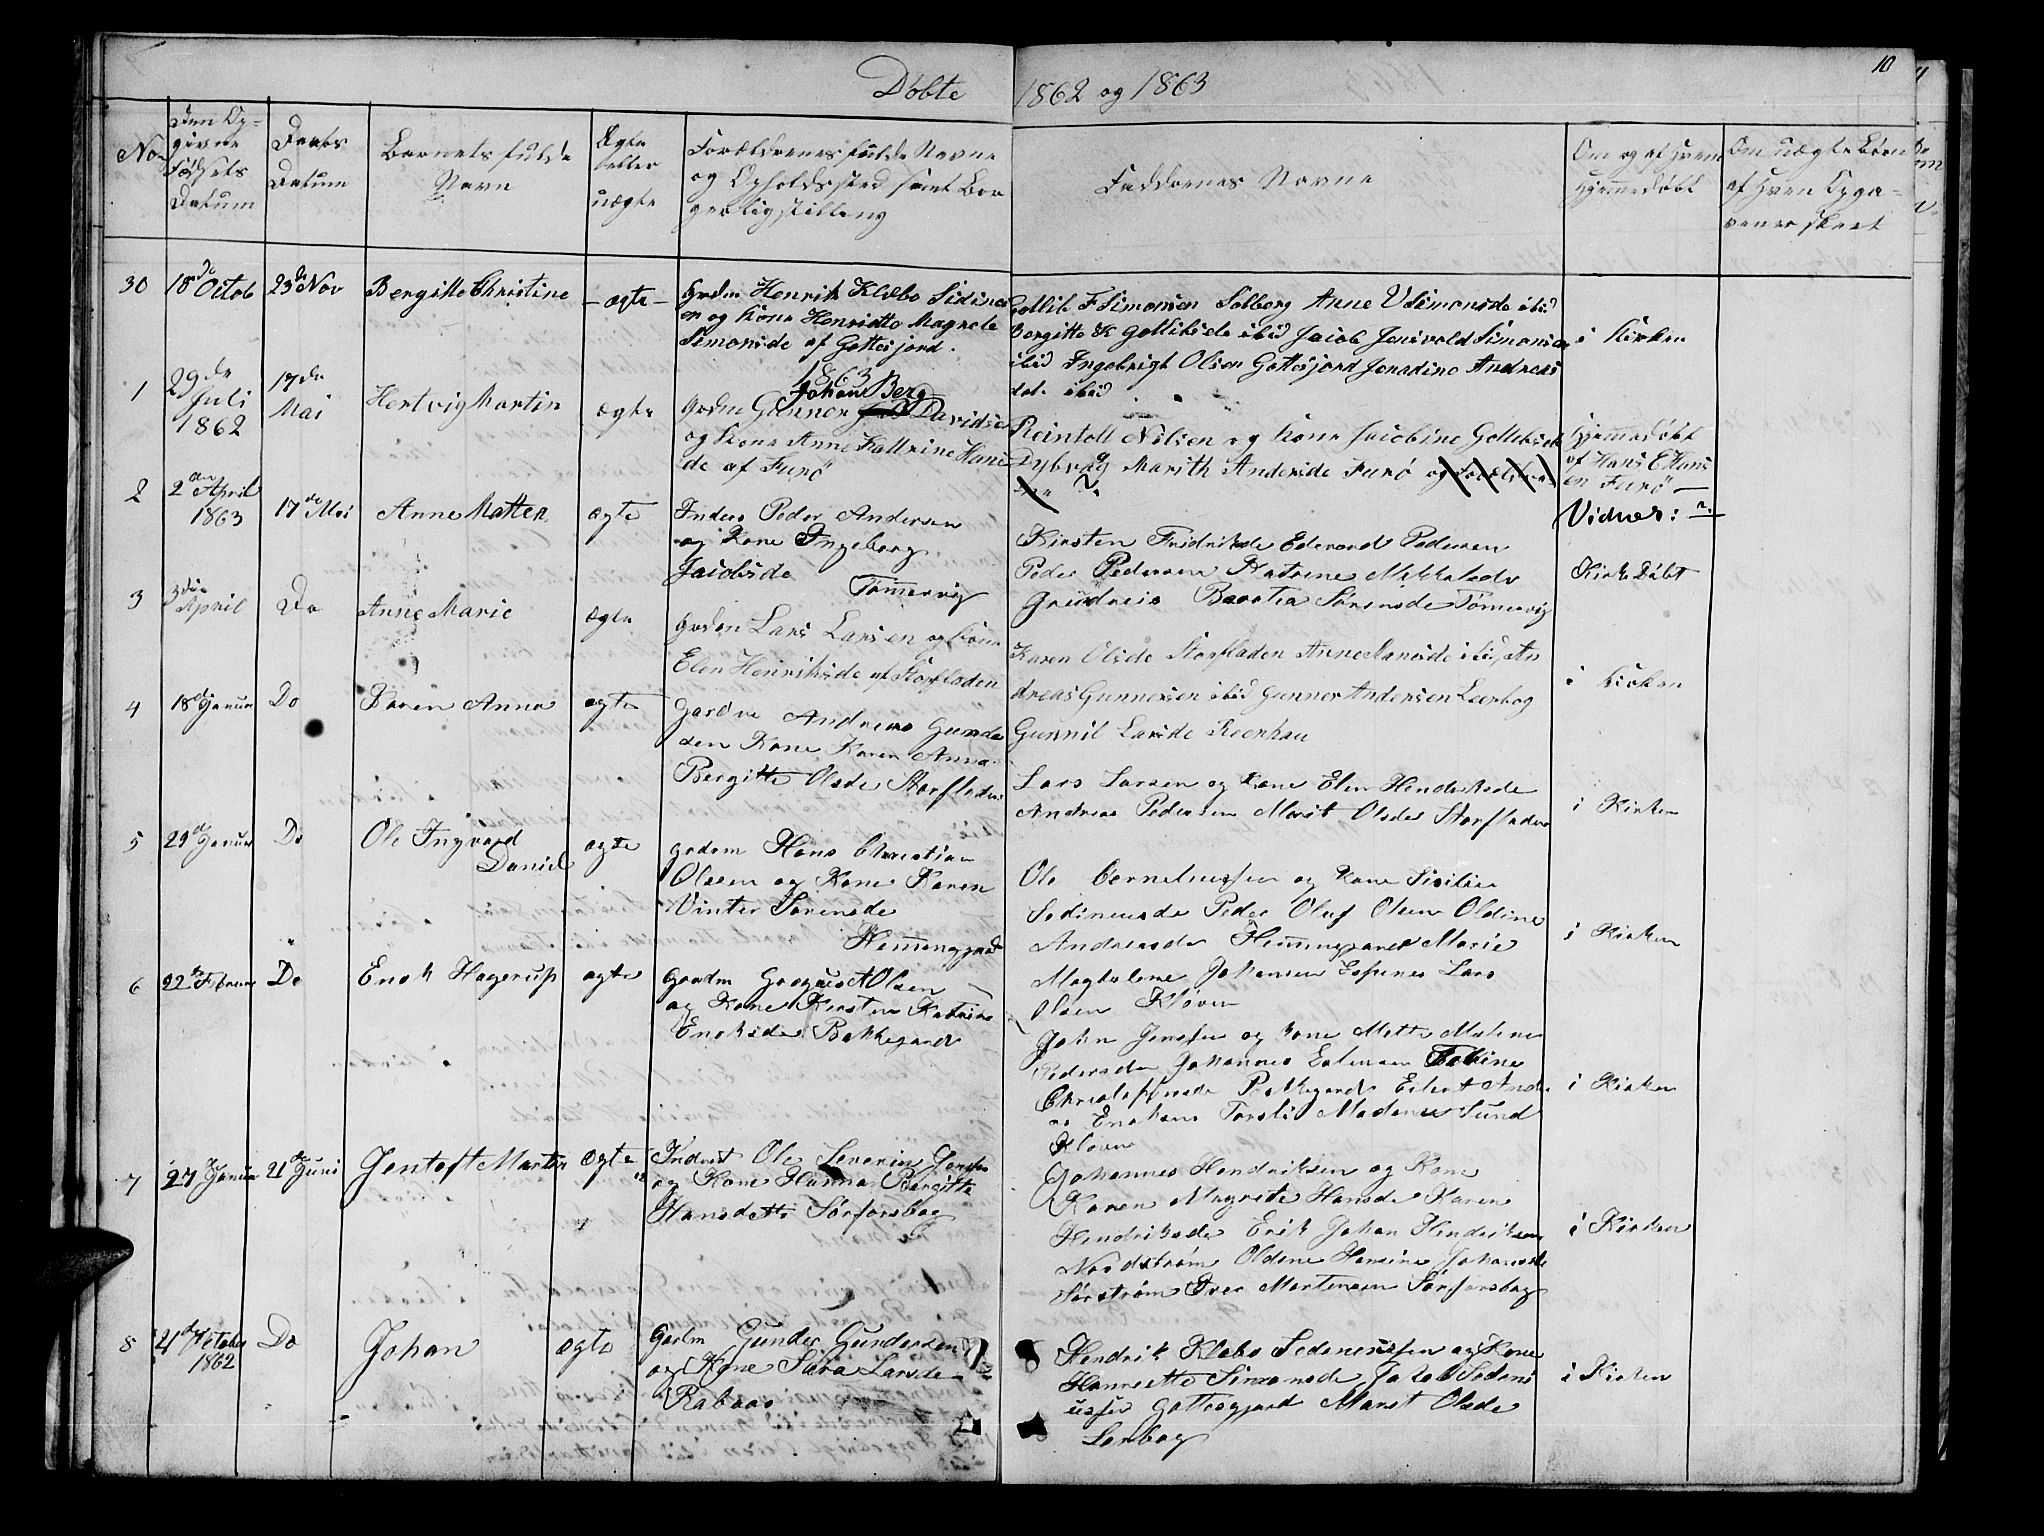 10
Döbte 1862 og 1863
No
Den Op-
givne
Födsels
Datum
Daabs
Datum
Barnets fulde
Navn
Ægte
eller
uægte
Forældrenes fulde Navne
og Opholdssted samt Bor
gerligstilling
Faddernes Navne
Om og af Hvem
Hjemmedöbt
Om uægte Börn
af Hven Opga-
vener skeet
30 18de Octob 23de Nov Bergitte Christine - ægte -
Grdm Henrik Klæbo Sidinus
en og Kone Henriette Magrete
Simonsde af Gottesjord.
Gotlib F Simonsen Solberg Anne U Simonsde ibid
Bergitte K Gottlibsde ibid Jacob Jenivold Simonsen
ibid Ingebrigt Olsen Gottesjord Jensdine Andreas
dat. ibid
i Kirken
1863
1 29de
Juli
1862
17de
Mai
Hertvig Martin ægte
Johan Berg
Grdm Gunner Davidse
og Kone Anne Kattrine Hans
de af Furö
Reintolt Nilsen og Kone Jacobine Gottlibsde
Dybvag Marith Andersde Furö og Forældre
ne
Hjemmedöbt
af Hans E Hans
en Furö -
Vidner:
2 2den April
1863
17de Mai Anne Matten ægte
Inders Peder Andersen
og Kone Ingeborg
Jacobsde
Tömmervig
Kirsten Fridriksde Edevard Pedersen
Peder Pedersen Katrine Mikkelsde
Grendreis Beratea Sörensde Tömervig
Kirke Döbt
3 3die
April
Do Anne Marie ægte
Grdm Lars Larsen og Kone
Elen Henriksde af Storfladen
Karen Olsde Storfladen Anne Larsde ibid An
dreas Gunnersen ibid Gunner Andersen Leerbog
Gunnil Larsde
i Kirken
4 18de Januar Do Karen Anna ægte
Gardm Andreas Gunde
sen Kone Karen Anna
Bergitte Olsde Storfladen
Lars Larsen og Kone Elen Hendriksde
Andreas Pedersen Marit Olsde Storfladen
i Kirken
5 29de Januar Do Ole Ingvard
Daniel
ægte
gardm Hans Christian
Olsen og Kone Karen
Vinter Sörensde
Hemmingjord
Ole Corneliussen og Kone Sisilie
Sedineusde Peder Oluf Olsen Oldine
Andreasde Hemmingjord Marie
Magdalene Johansen Espenes Lars
Olsen Klöven
i Kirken
6 22de Februar Do Enok Hagerup ægte
Gardm Andreas Olsen
og Kone Kirsten Katrine
Enoksde Bakkejord
John Jensen og Kone Mette Malene
Pedersde Johannes Estensen Tobine
Christofersde Bakkejord Eilert Ande
as Enoksen Torsli Madene Sund
Klöven
i Kirken
7 27 Januar 21de Juni Jentoft Martin ægte
Indrest Ole Severin Jensen
og Kone Hanna Bergitte
Hansdatt Sörforsbog
Johannes Hendriksen og Kone
Karen Magrete Hansde Karen
Hendriksde Erik Johan Hendriksen
Nordström Oldene Hansine Johansde
Sörström Iver Mortensen Sörforsbog
i Kirken
8 4de October
1862
Do Johan ægte
Gardm Gunder Gundersen
og Kone Sara Larsde
Rabaas
Hendrik Klæbo Sedeniussen og Kone
Henriette Simonsde Jakob Sedeni
ussen Gottesjord Maret Olsde
Lerbog
i Kirken